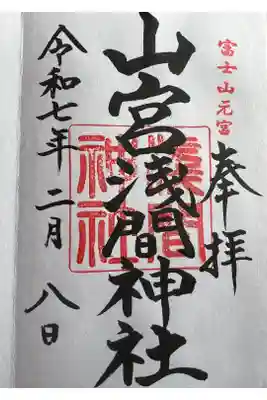 富士山元宮
奉拝
山宮淺間神社
淺間神社
令和七年二月八日